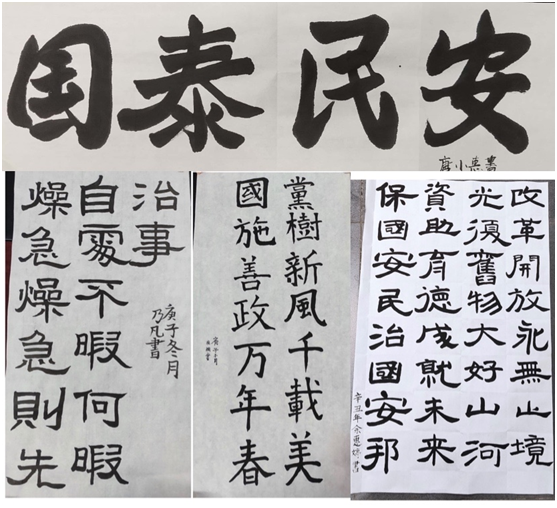 国泰民安
燥急燥急則先
自處不暇何暇
治事
庚子冬月
乃凡書
黨樹新風千載美
國施善政万年春
改革開放永無止境
光復舊物大好山河
資助育德成就未来
保國安民治國安邦
辛丑年余惠
書